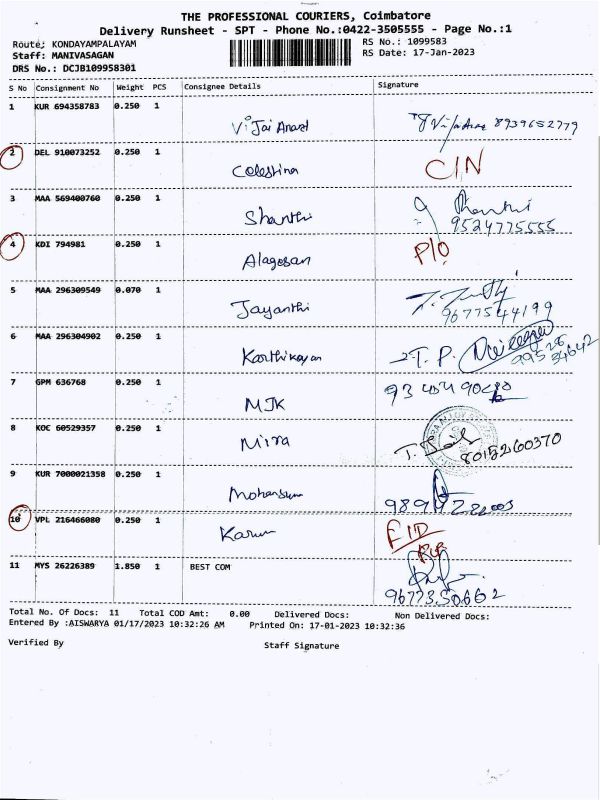 THE PROFESSIONAL COURIERS, Coimbatore
Delivery Runsheet - SPT - Phone No.:0422-3505555 - Page No.:1
Route: KONDAYAMPALAYAM RS No.: 1099583
Staff: MANIVASAGAN RS Date: 17-Jan-2023
DRS No.: DCJB109958301
S No Consignment No Weight PCS Consignee Details Signature
1 KUR 694358783 0.250 1 Vijai Anand 8939652779
2 DEL 910073252 0.250 1 Celestina C/N
3 MAA 569400760 0.250 1 Shanthi Shanthi
9524775555
4 KDI 794981 0.250 1 Alagesan P/O
5 MAA 296309549 0.070 1 Jayanthi
9677544199
6 MAA 296304902 0.250 1 Karthikayan T. P.
99526
34642
7 GPM 636768 0.250 1 MJK
8 KOC 60529357 0.250 1 Mirra 8015260370
9 KUR 7000021358 0.250 1 Mohansum
10 VPL 216466080 0.250 1 Karun
11 MYS 26226389 1.850 1 BEST COM
9677350662
Total No. Of Docs: 11 Total COD Amt: 0.00 Delivered Docs: Non Delivered Docs:
Entered By :AISWARYA 01/17/2023 10:32:26 AM Printed On: 17-01-2023 10:32:36
Verified By Staff Signature